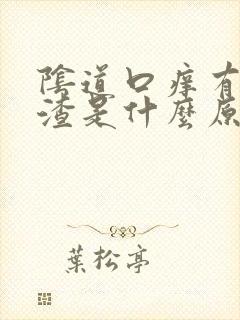 陰道口痒有
渣是什麼原
葉松亭